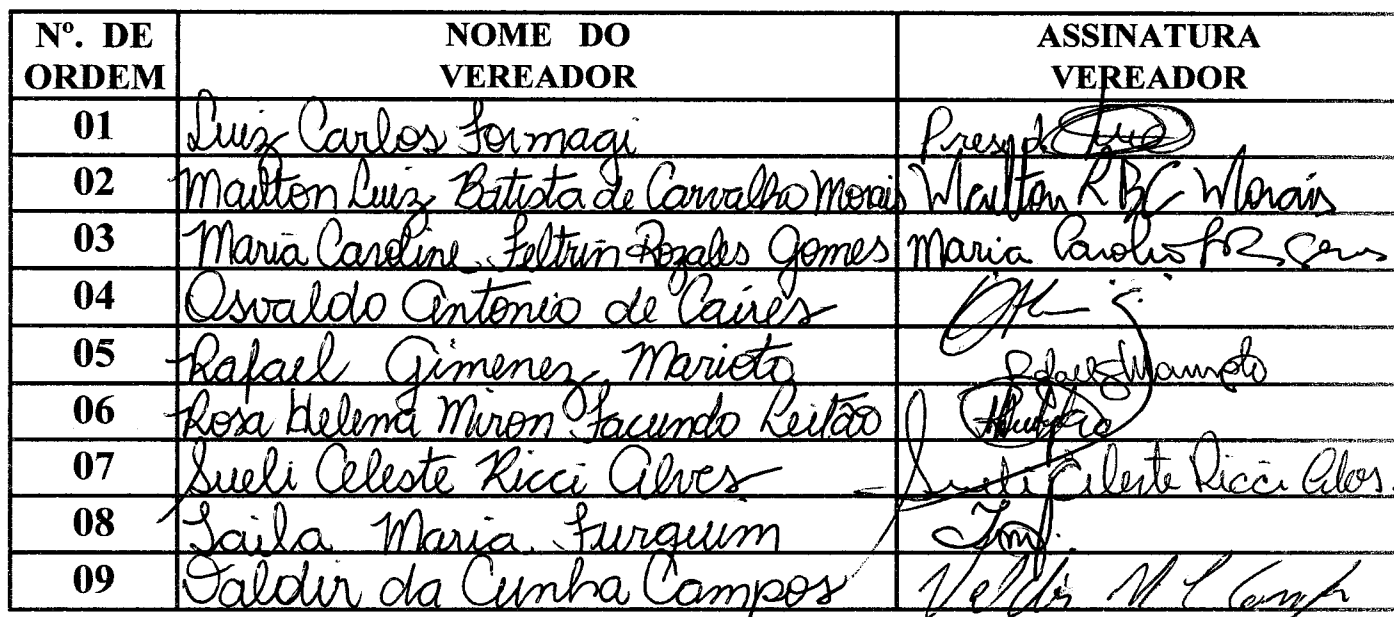 Nº. DE ORDEM NOME DO VEREADOR ASSINATURA VEREADOR
01 Luiz Carlos Formagi
02 Mailton Luiz Batista de Carvalho Morais Mailton R BC Morais
03 Maria Caroline Feltrin Rozales Gomes Maria
04 Osvaldo Antonio de Caires
05 Rafael Gimenez Marioto
06 Rosa Helena Miron Facundo Leitão
07 Sueli Celeste Ricci Alves Sueli Celeste Ricci Alves.
08 Taila Maria Furquim
09 Valdir da Cunha Campos